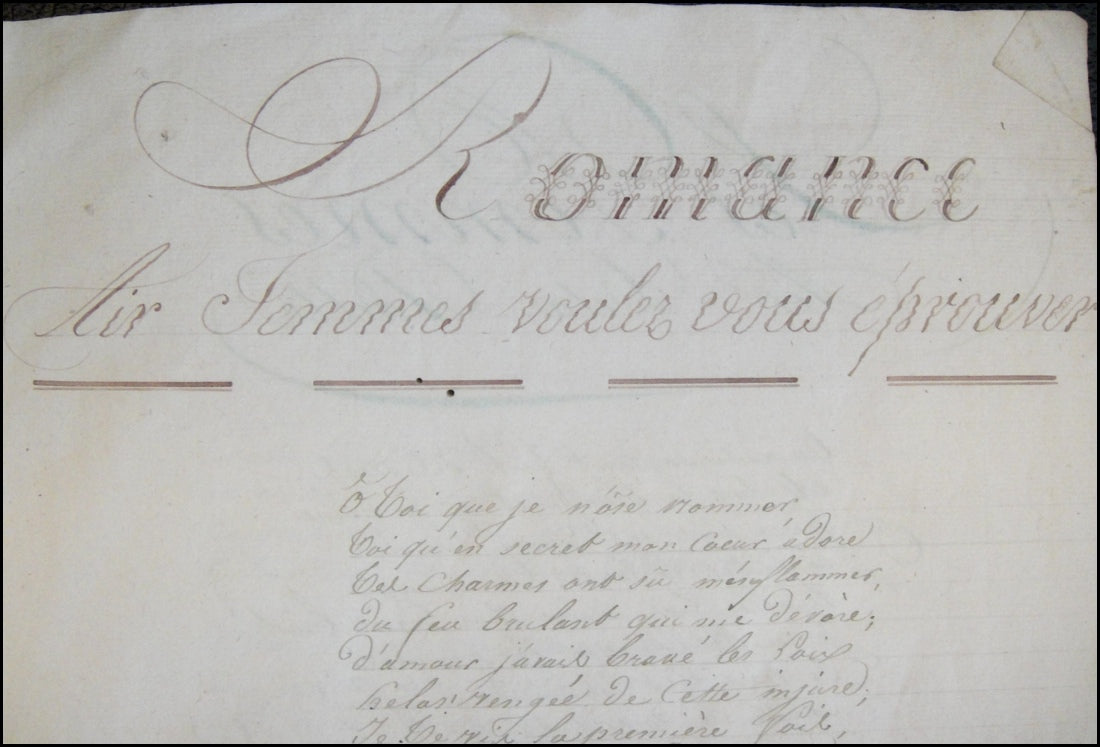 Romance
Air Femmes voulez vous éprouver
ô toi que je n'ôse nommer
toi qu'en secret mon Coeur adore
tes Charmes ont sû m'enflammer,
du feu brulant qui me dévore;
d'amour j'avais bravé les Loix
helas vengée de Cette injure;
Je te vis la première fois,